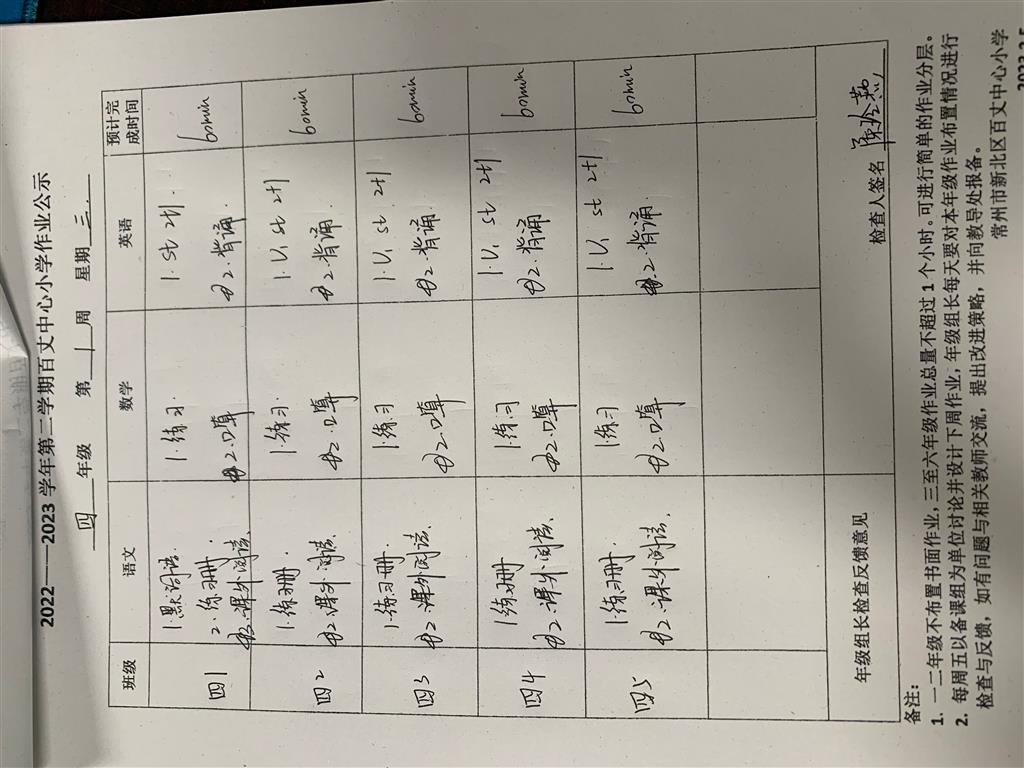 2022——2023 学年第二学期百丈中心小学作业公示
四 年级 第 1 周 星期 三.
班级 语文 数学 英语 预计完成时间
四1 1.默词语. 1.练习. 1. st 计. 60min
2.练习册.
☆3.课外阅读. ☆2.口算 ☆2.背诵.
四2 1.练习册. 1.练习. 1. U1 st 计 60min
☆2.课外阅读. ☆2.口算 ☆2.背诵
四3 1.练习册. 1.练习 1. U1 st 计. 60min
☆2.课外阅读. ☆2.口算 ☆2.背诵.
四4 1.练习册 1.练习 1. U1 st 计 60min
☆2.课外阅读. ☆2.口算 ☆2.背诵
四5 1.练习册. 1.练习 1. U1 st 计 60min
☆2.课外阅读. ☆2.口算 ☆2.背诵
年级组长检查反馈意见 检查人签名
备注:
1. 一二年级不布置书面作业,三至六年级作业总量不超过 1 个小时。可进行简单的作业分层。
2. 每周五以备课组为单位讨论并设计下周作业,年级组长每天要对本年级作业布置情况进行
检查与反馈,如有问题与相关教师交流,提出改进策略,并向教导处报备。
常州市新北区百丈中心小学
2023.2.5